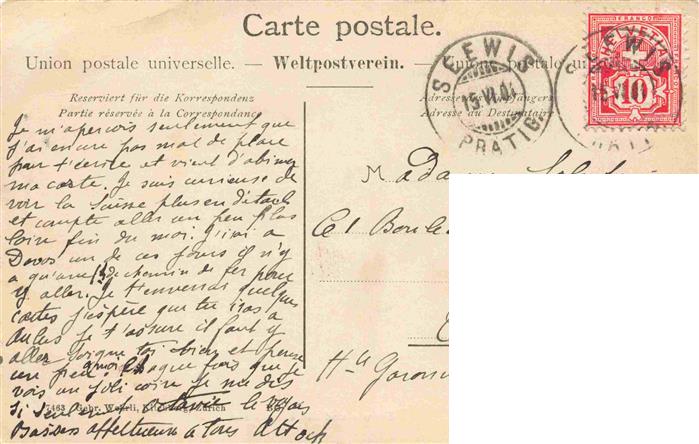 Carte postale.
Union postale universelle. — Weltpostverein. — Unione postale u
Reserviert für die Korrespondenz
Partie réservée à la Correspondance
Adresse du Destinataire
SEEWIS
15.VI.04
PRATIG
HELVETIA
FRANCO
10
Je m'aperçois seulement que
j'ai encore pas mal de place
pour t'écrire et vient d'abimer
ma carte. Je suis curieuse de
voir la Suisse plus en détails
et compte aller un peu plus
loin fin du mois. J'irai à
Davos un de ces jours il n'y
a qu' de chemin de fer pour
y aller. Je t'enverrai quelques
cartes j'espère que tu iras à
Aulus je t'assure il faut y
aller soigne toi bien et pense
un peu à moi. Chaque fois que je
vois un joli coin je me dis
si seulement Octavie le voyait
Baisers affectueux à tous
7463 Gebr. Wehrli, Kilchberg-Zürich
Madame
61 Boule
Hte Garonn